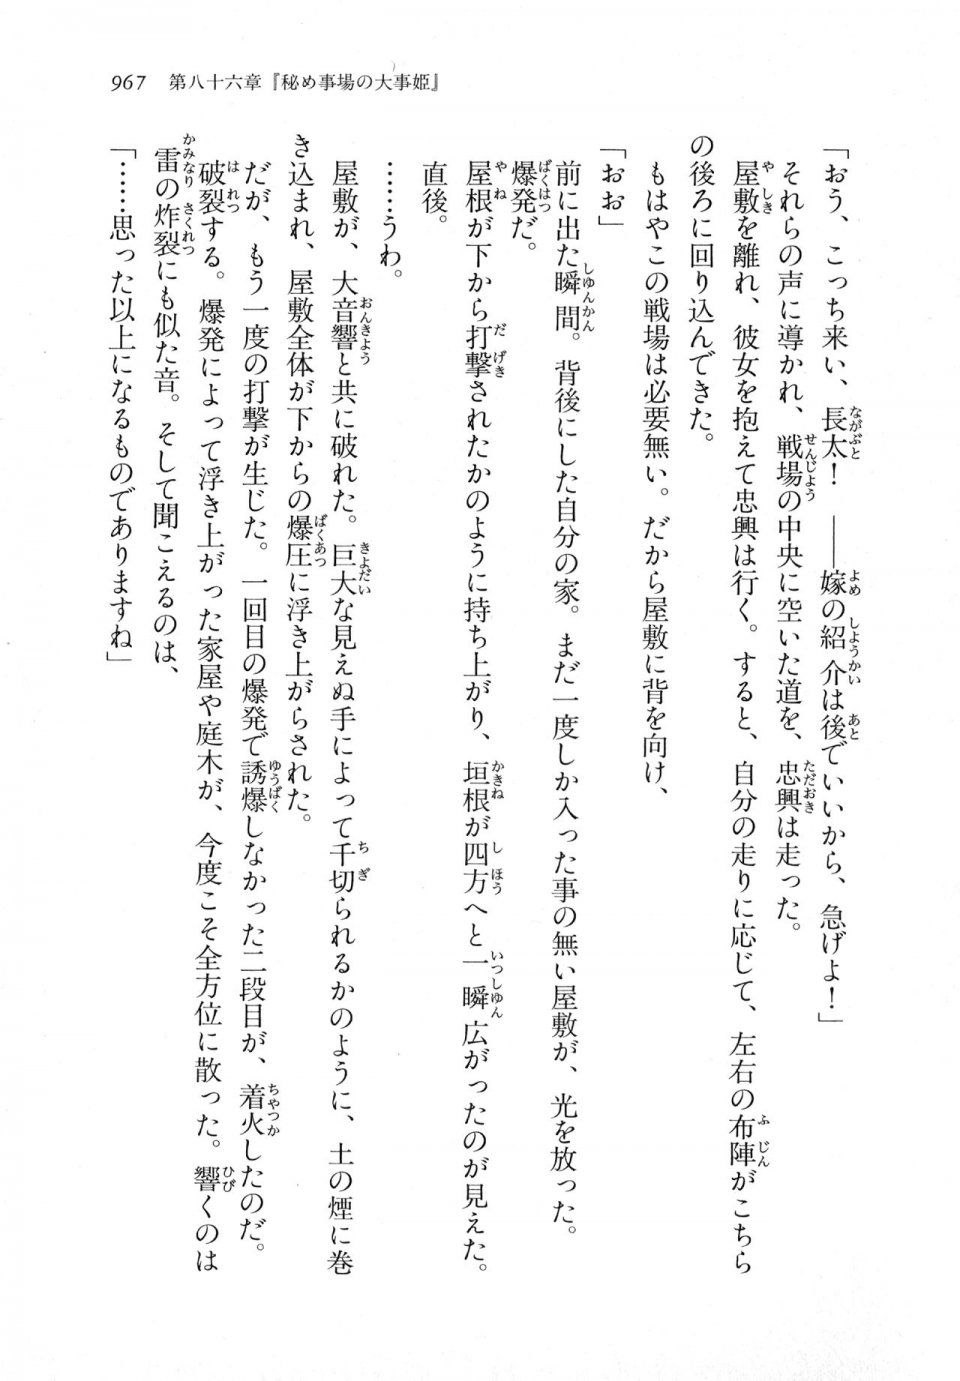 967　第八十六章『秘め事場の大事姫』
「おう、こっち来い、長太！　――嫁の紹介は後でいいから、急げよ！」
それらの声に導かれ、戦場の中央に空いた道を、忠興は走った。
屋敷を離れ、彼女を抱えて忠興は行く。すると、自分の走りに応じて、左右の布陣がこちら
の後ろに回り込んできた。
もはやこの戦場は必要無い。だから屋敷に背を向け、
「おお」
前に出た瞬間。背後にした自分の家。まだ一度しか入った事の無い屋敷が、光を放った。
爆発だ。
屋根が下から打撃されたかのように持ち上がり、垣根が四方へと一瞬広がったのが見えた。
直後。
……うわ。
屋敷が、大音響と共に破れた。巨大な見えぬ手によって千切られるかのように、土の煙に巻
き込まれ、屋敷全体が下からの爆圧に浮き上がらされた。
だが、もう一度の打撃が生じた。一回目の爆発で誘爆しなかった二段目が、着火したのだ。
破裂する。爆発によって浮き上がった家屋や庭木が、今度こそ全方位に散った。響くのは
雷の炸裂にも似た音。そして聞こえるのは、
「……思った以上になるものでありますね」